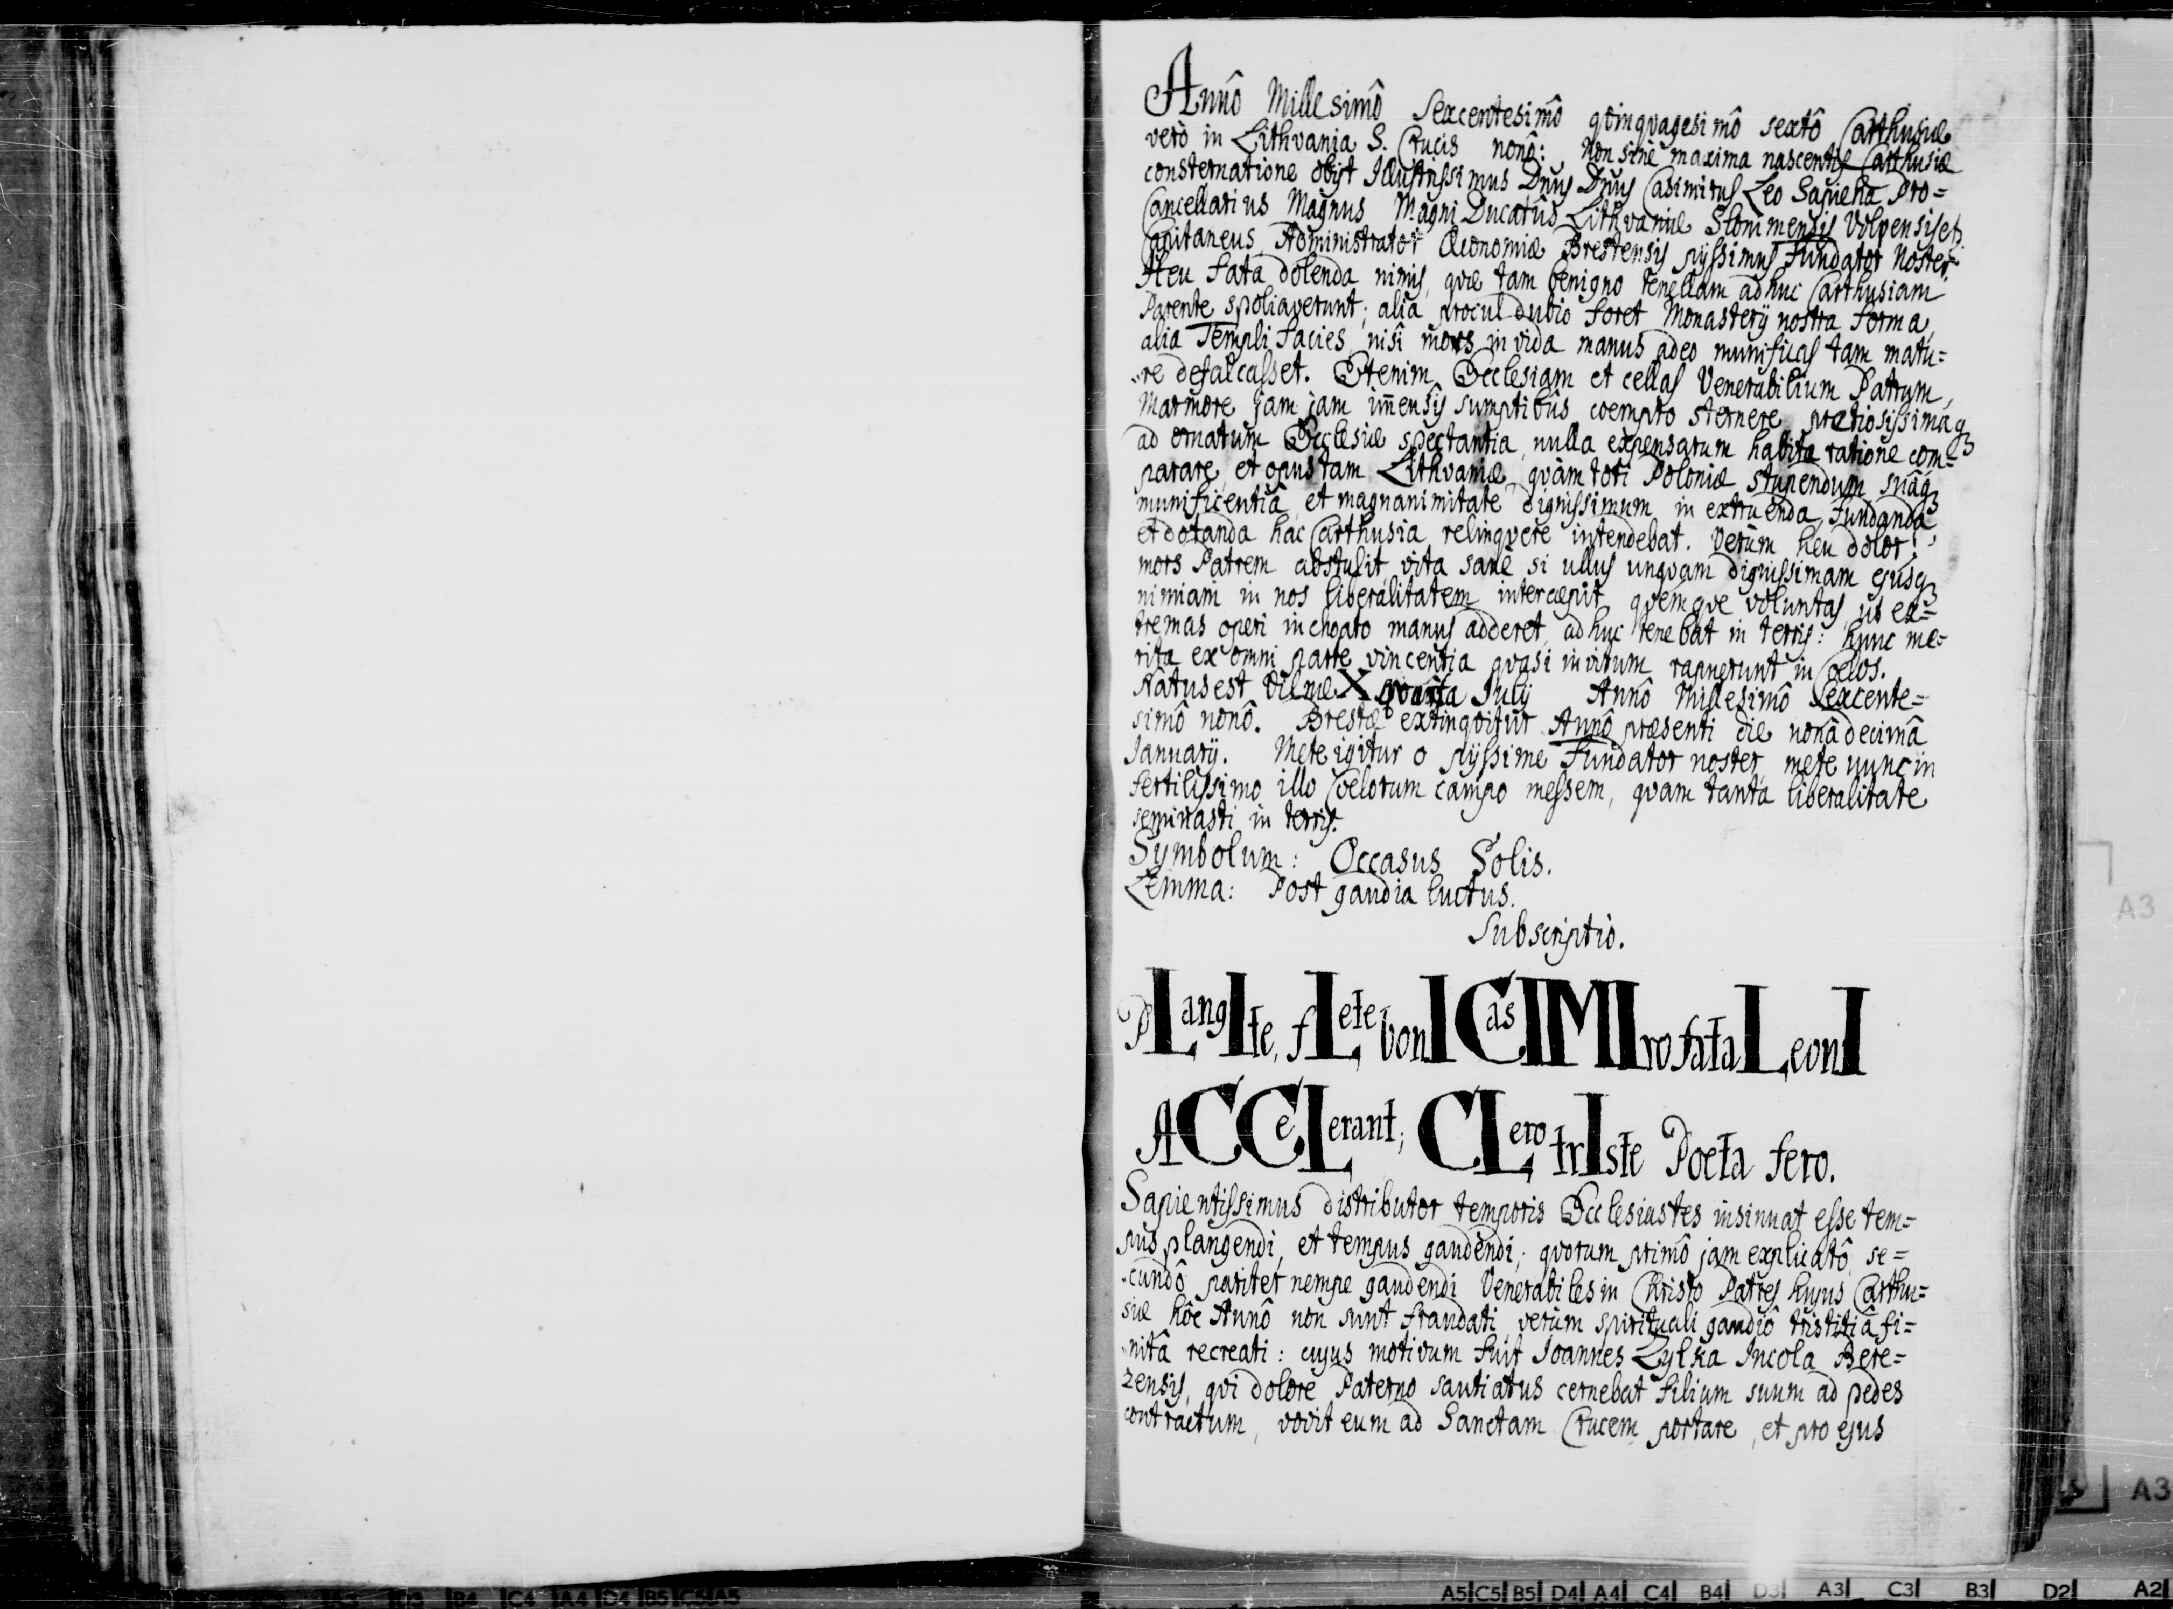 Annô Millesimô Sexcentesimô qvinqvagesimô sextô Carthusiæ
verò in Lithvania S. Crucis nonô: Non sine maxima nascentis Carthusiæ
consternatione obijt Illustrissimus Dnus Dnus Casimirus Leo Sapieha Pro=
Cancellarius Magnus Magni Ducatûs Lithvaniæ Slonimensis Volpensis et
Capitaneus, Administrator Œconomiæ Brestensis pijssimus Fundator Noster.
Heu fata dolenda nimis, quæ tam benigno tenellam adhuc Carthusiam
Parente spoliaverunt; alia procul dubio foret Monasterij nostra forma,
alia Templi facies, nisi mors invida manus adeo munificas tam matu=
re defalcasset. Etenim Ecclesiam et cellas Venerabilium Patrum,
Marmore jam jam imensis sumptibus coempto sternere, prætiosissimaq3
ad ornatum Ecclesiæ spectantia, nulla expensarum habita ratione com=
parare, et opus tam Lithvaniæ, quàm toti Poloniæ stupendum, suâq3
munificentiâ, et magnanimitate dignissimum in extruenda, fundanda,
et dotanda hac Carthusia relinqvere intendebat. Verùm heu dolor!
mors Patrem abstulit, vita sanè si ullus unqvam dignissimam ejusq3
nimiam in nos liberalitatem intercæpit, qvemqve voluntas, ut ex=
tremas operi inchoato manus adderet, adhuc tenebat in terris: hunc me=
rita ex omni parte vincentia qvasi invitum rapuerunt in Cœlos.
Natus est Vilnæ X qvinta Julij Annô Millesimô Sexcente=
simô nonô. Brestæ extingvitur Annô præsenti die nonâ decimâ
Januarij. Mete igitur o pijssime Fundator noster, mete nunc in
fertilissimo illo Cœlorum campo messem, qvam tanta liberalitate
seminasti in terris.
Symbolum: Occasus Solis.
Lemma: Post gaudia luctus.
Subscriptio.
PLangIte, fLete bonI CasIMIro fata LeonI
ACCeLerant; CLero trIste Poeta fero.
Sapientissimus distributor temporis Ecclesiastes insinuat esse tem=
pus plangendi, et tempus gaudendi; qvorum primô jam explicatô, se=
cundô pariter nempe gaudendi Venerabiles in Christo Patres hujus Carthu=
siæ hôc Annô non sunt fraudati, verùm spirituali gaudiô tristitiâ fi=
nitâ recreati: cujus motivum fuit Joannes Zylka Incola Bere=
zensis, qvi dolore Paterno sautiatus cernebat filium suum ad pedes
contractum, vovit eum ad Sanctam Crucem portare, et pro ejus